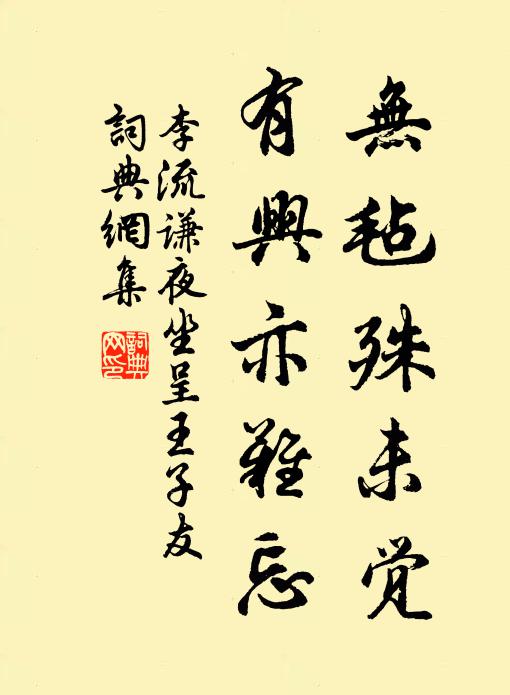 無毡殊未觉
有興亦難忘
李流谦夜坐呈王子友
詞典網集
詞典
网印